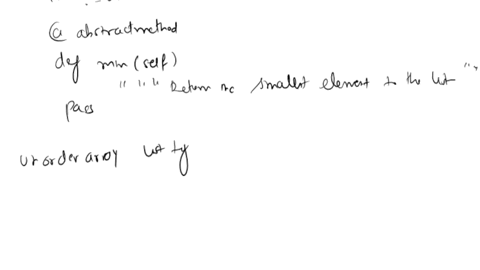 @ abstractmethod
def min (self)
""" Return the smallest element to the list """
pass
unorder array list